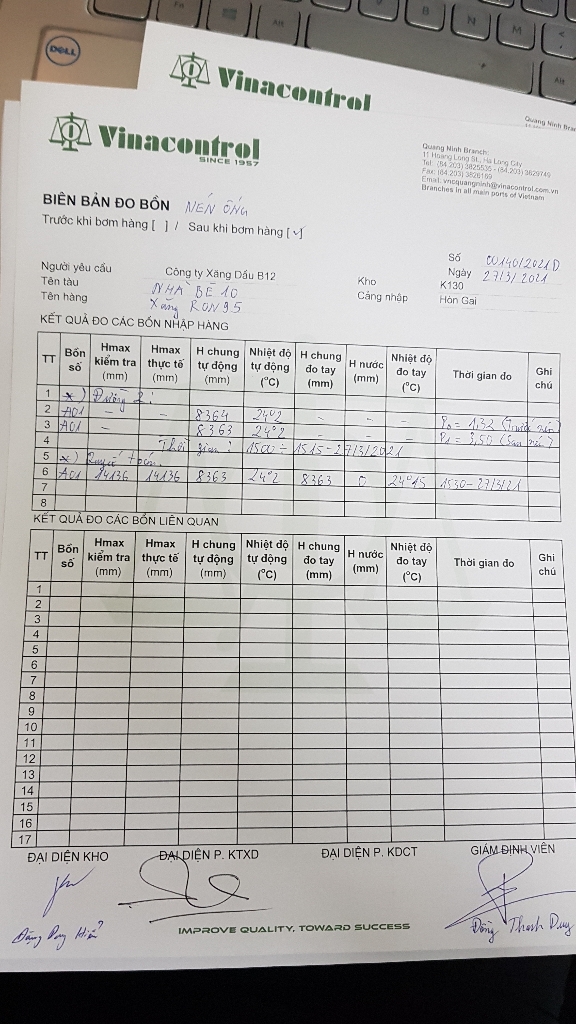 DELL
Fn
Alt
B
N
M
Alt
Vinacontrol
Quang Ninh Bran
Vinacontrol
SINCE 1957
Quang Ninh Branch:
11 Hoang Long St., Ha Long City
Tel: (84.203) 3825535 - (84.203) 3829749
Fax: (84.203) 3826169
Email: vncquangninh@vinacontrol.com.vn
Branches in all main ports of Vietnam
BIÊN BẢN ĐO BỒN NÉN ỐNG
Trước khi bơm hàng [ ] / Sau khi bơm hàng [✓]
Số 00140/2021D
Người yêu cầu Công ty Xăng Dầu B12 Ngày 27/3/2021
Tên tàu NHÀ BÈ 10 Kho K130
Tên hàng Xăng RON95 Cảng nhập Hòn Gai
KẾT QUẢ ĐO CÁC BỒN NHẬP HÀNG
TT Bồn số Hmax kiểm tra (mm) Hmax thực tế (mm) H chung tự động (mm) Nhiệt độ tự động (°C) H chung đo tay (mm) H nước (mm) Nhiệt độ đo tay (°C) Thời gian đo Ghi chú
1 *) Đường 2:
2 A01 - - 8364 24°2 - - - P0 = 1,32 (Trước nén)
3 A01 - 8363 24°2 - - - P1 = 3,50 (Sau nén)
4 Thời gian: 1500 ÷ 1515-27/3/2021
5 *)
6 A01 14136 14136 8363 24°2 8363 0 24°15 1530-27/3/21
7
8
KẾT QUẢ ĐO CÁC BỒN LIÊN QUAN
TT Bồn số Hmax kiểm tra (mm) Hmax thực tế (mm) H chung tự động (mm) Nhiệt độ tự động (°C) H chung đo tay (mm) H nước (mm) Nhiệt độ đo tay (°C) Thời gian đo Ghi chú
1
2
3
4
5
6
7
8
9
10
11
12
13
14
15
16
17
ĐẠI DIỆN KHO ĐẠI DIỆN P. KTXD ĐẠI DIỆN P. KDCT GIÁM ĐỊNH VIÊN
Thanh Duy
IMPROVE QUALITY, TOWARD SUCCESS